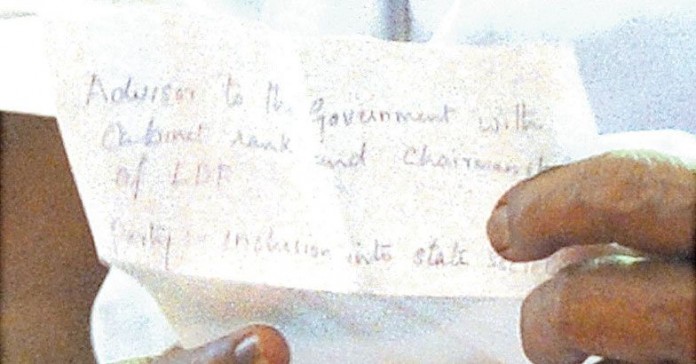 Advisor to the Government with
Cabinet rank and Chairmanship
of LDF
Party - inclusion into state